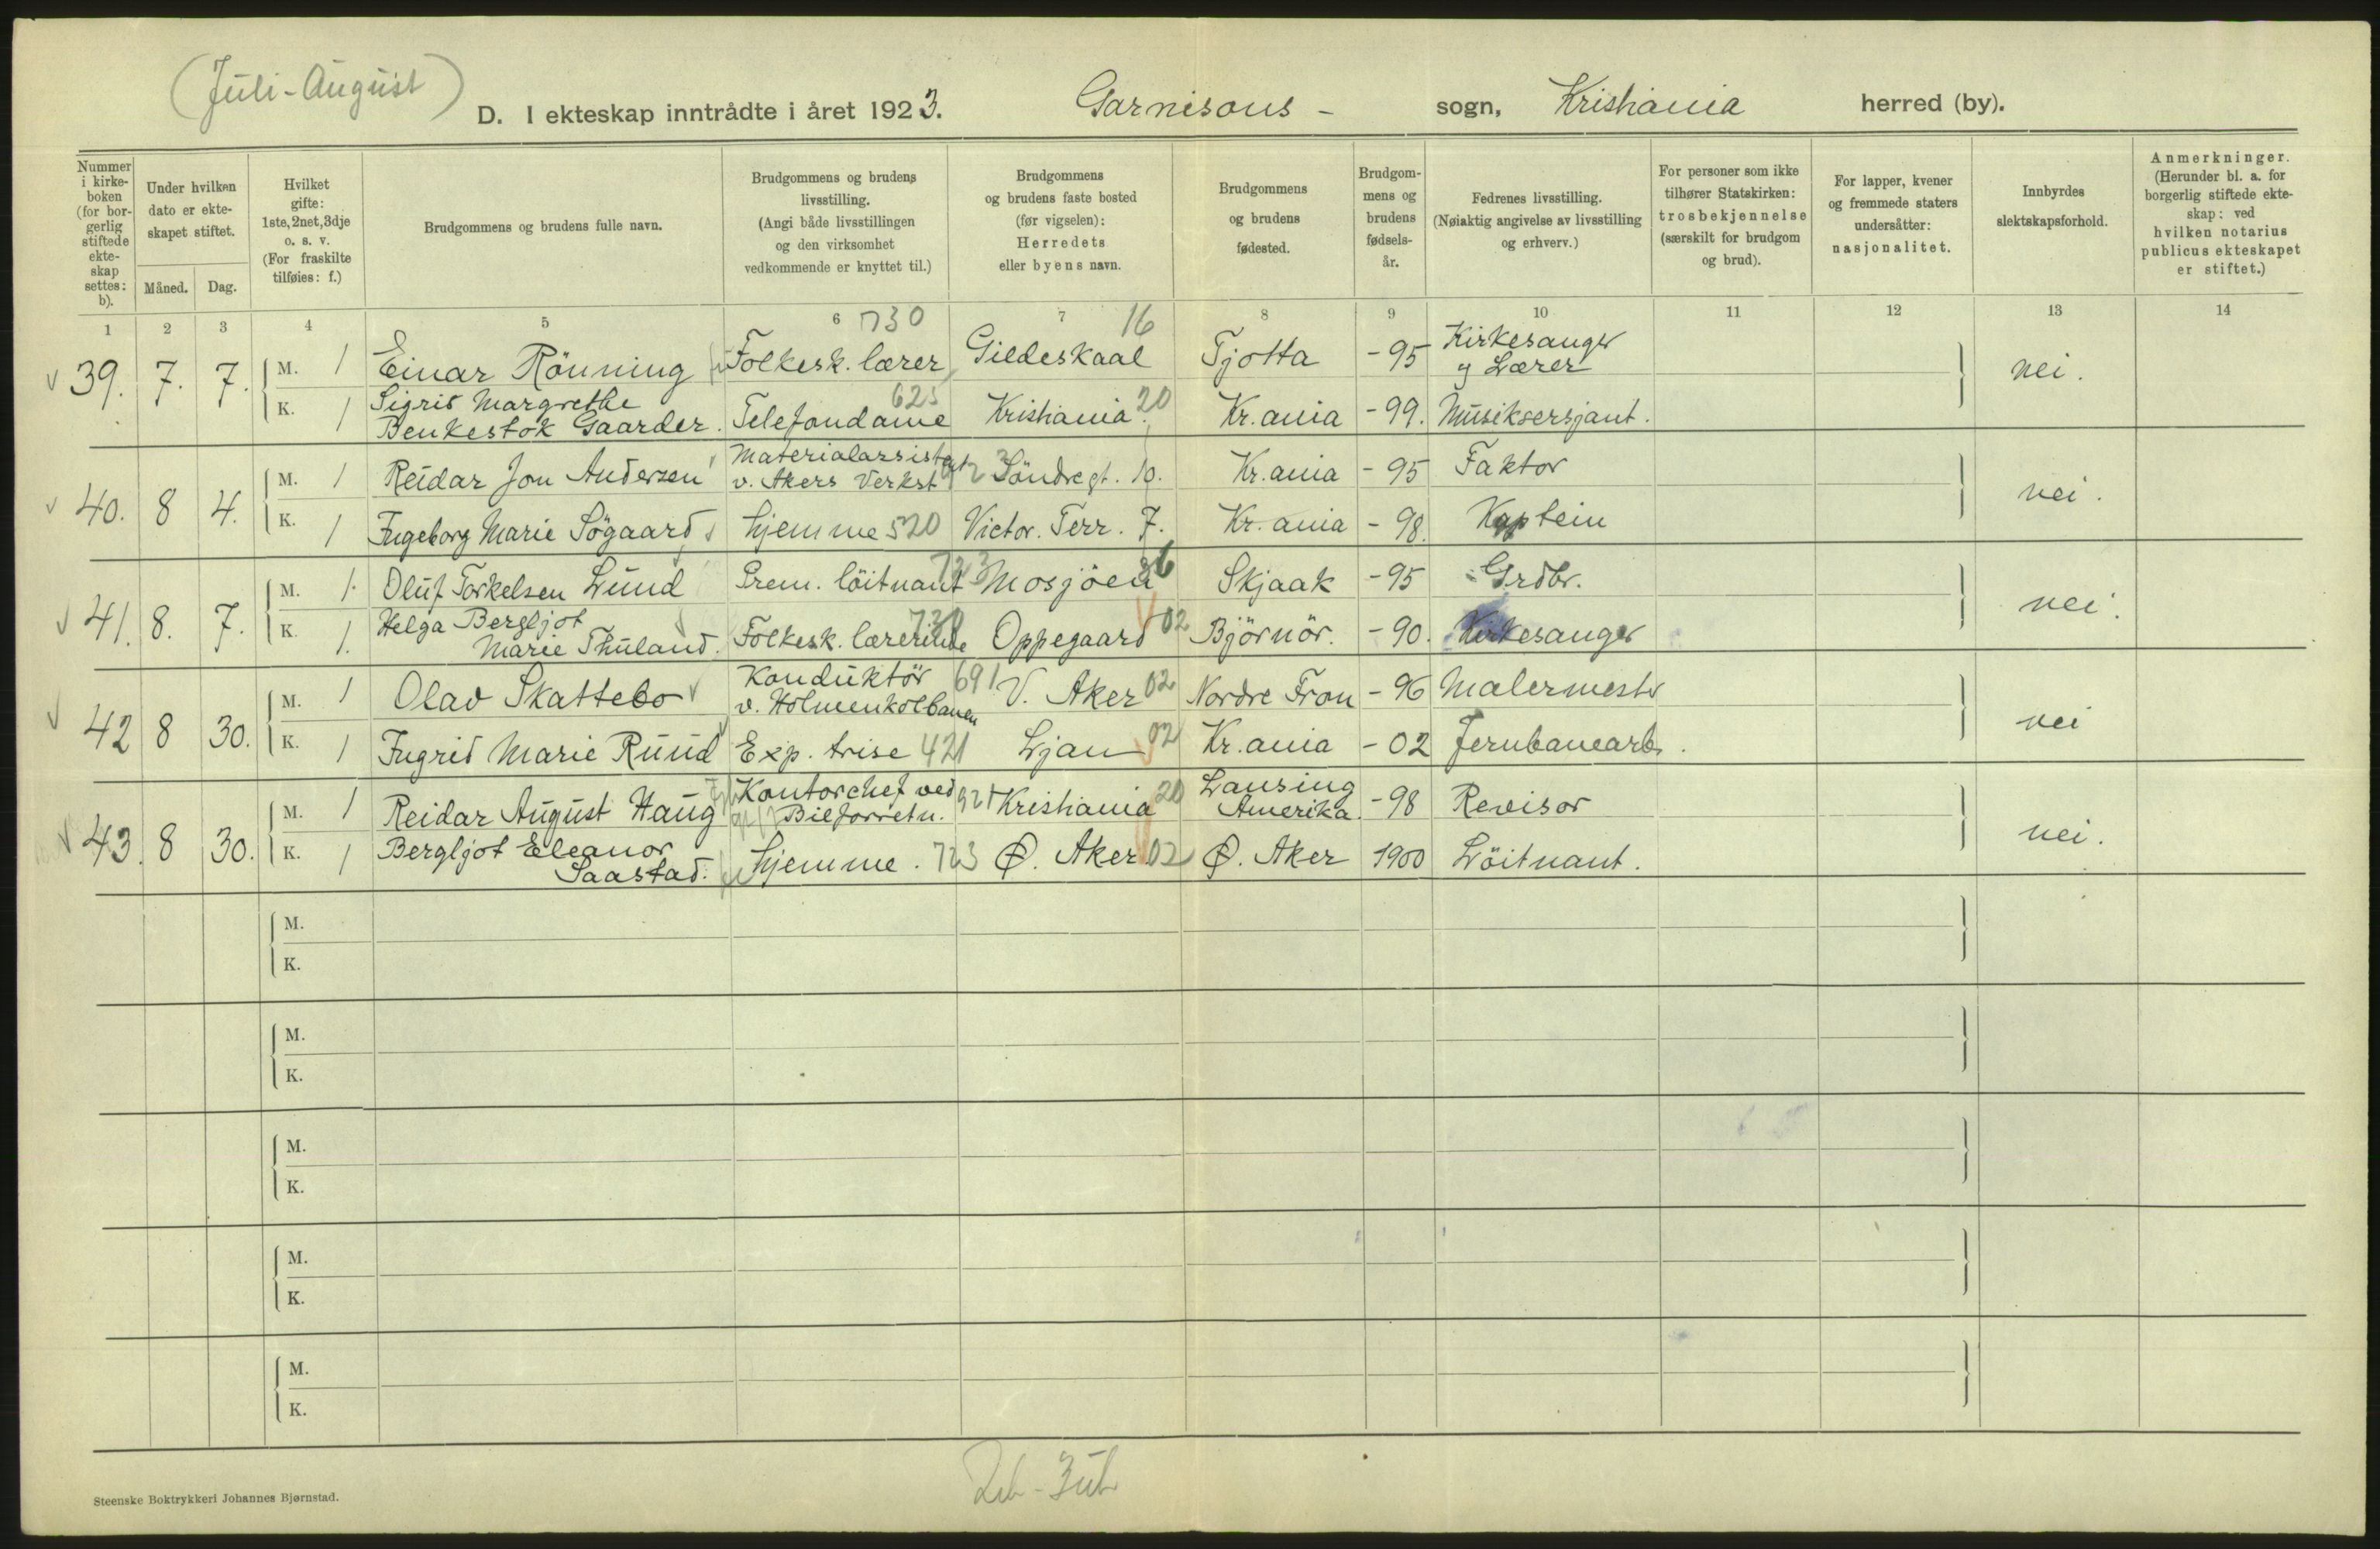 (Juli-August)
D. I ekteskap inntrådte i året 1923. Garnisons- sogn, Kristiania herred (by).
Nummer i kirke-boken (for bor-gerlig stiftede ekte-skap settes: b).
Under hvilken dato er ekte-skapet stiftet.
Måned. Dag.
Hvilket gifte: 1ste, 2net, 3dje o. s. v. (For fraskilte tilføies: f.)
Brudgommens og brudens fulle navn.
Brudgommens og brudens livsstilling. (Angi både livsstillingen og den virksomhet vedkommende er knyttet til.)
Brudgommens og brudens faste bosted (før vigselen): Herredets eller byens navn.
Brudgommens og brudens fødested.
Brudgom-mens og brudens fødsels-år.
Fedrenes livsstilling. (Nøiaktig angivelse av livsstilling og erhverv.)
For personer som ikke tilhører Statskirken: trosbekjennelse (særskilt for brudgom og brud).
For lapper, kvener og fremmede staters undersåtter: nasjonalitet.
Innbyrdes slektskapsforhold.
Anmerkninger. (Herunder bl. a. for borgerlig stiftede ekte-skap: ved hvilken notarius publicus ekteskapet er stiftet.)
1 2 3 4 5 6 7 8 9 10 11 12 13 14
730 16
39. 7. 7. M. 1 Einar Rönning Folkesk. lærer Gildeskaal Tjotta -95 Kirkesanger og Lærer nei.
K. 1 Sigrid Margrethe Benkestok Gaarder. Telefondame 625 Kristiania 20 Kr.ania -99. Musiksersjant.
40. 8 4. M. 1 Reidar Jon Andersen Materialassistent v. Akers Verkst. Söndregt. 10. Kr.ania -95 Faktor nei.
K. 1 Ingeborg Marie Sögaard hjemme 520 Victor. Terr. 7. Kr.ania -98. Kaptein
41. 8. 7. M. 1. Oluf Torkelsen Lund Prem. löitnant 723 Mosjöen Skjaak -95 Grdbr. nei.
K. 1. Helga Bergljot Marie Thuland. Folkesk. lærerinde 730 Oppegaard 02 Björnör. -90. Kirkesanger
42 8 30. M. 1 Olav Skattebo Konduktör v. Holmenkolbanen 691 V. Aker 02 Nordre Fron -96 Malermester nei
K. 1 Ingrid Marie Ruud Exp. trise 421 Ljan 02 Kr.ania -02 Jernbanearb.
43. 8 30. M. 1 Reidar August Haug Kontorchef ved Bilforretn. 921 Kristiania 20 Lansing Amerika. -98 Revisor nei.
K. 1 Bergljot Eleanor Saastad. hjemme. 723 Ø. Aker 02 Ø. Aker 1900 Löitnant.
M.
K.
M.
K.
M.
K.
M.
K.
M.
K.
Steenske Boktrykkeri Johannes Bjørnstad.